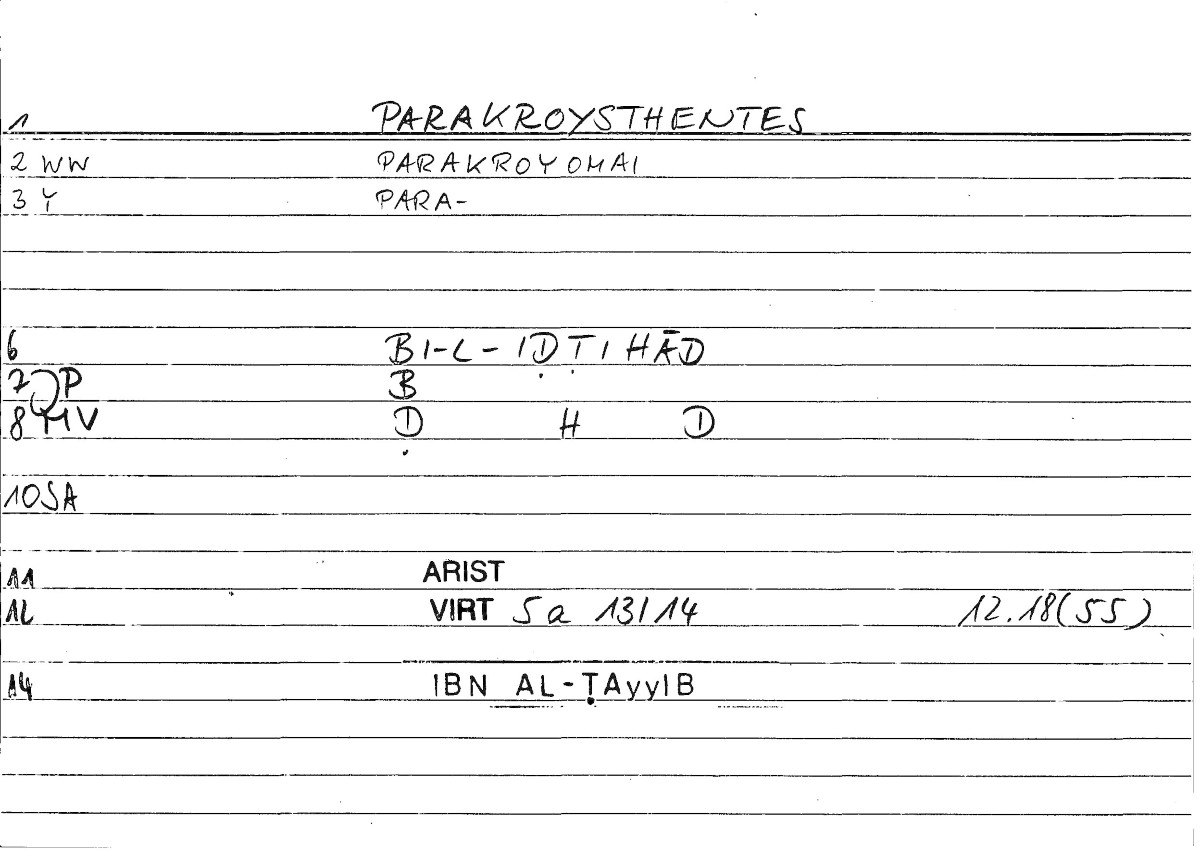 1 PARAKROYSTHENTES
2 WW PARAKROYOMAI
3 Y PARA-
6 BI-L-IḌṬIHĀD
7 P B
8 MV Ḍ H D
10 SA
11 ARIST
12 VIRT 5a 13/14 12.18(55)
14 IBN AL-ṬAyyIB